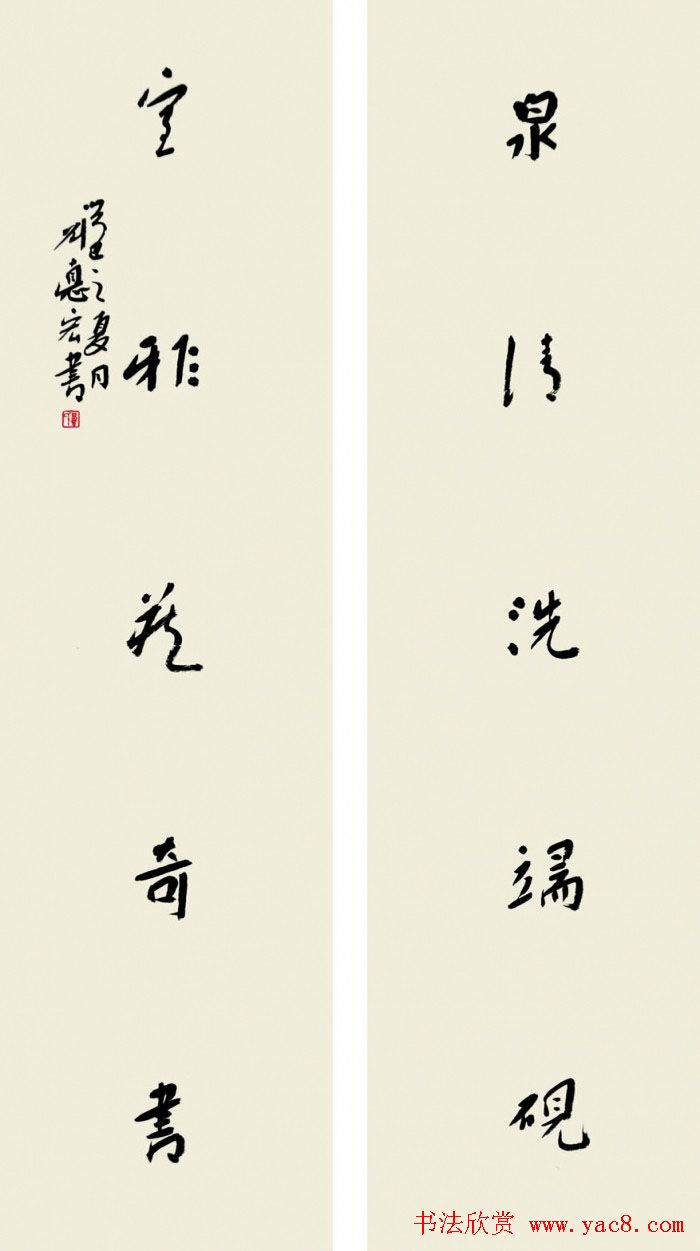 泉清洗端硯
室雅藏奇書
之夏月
惪宏書
书法欣赏 www.yac8.com